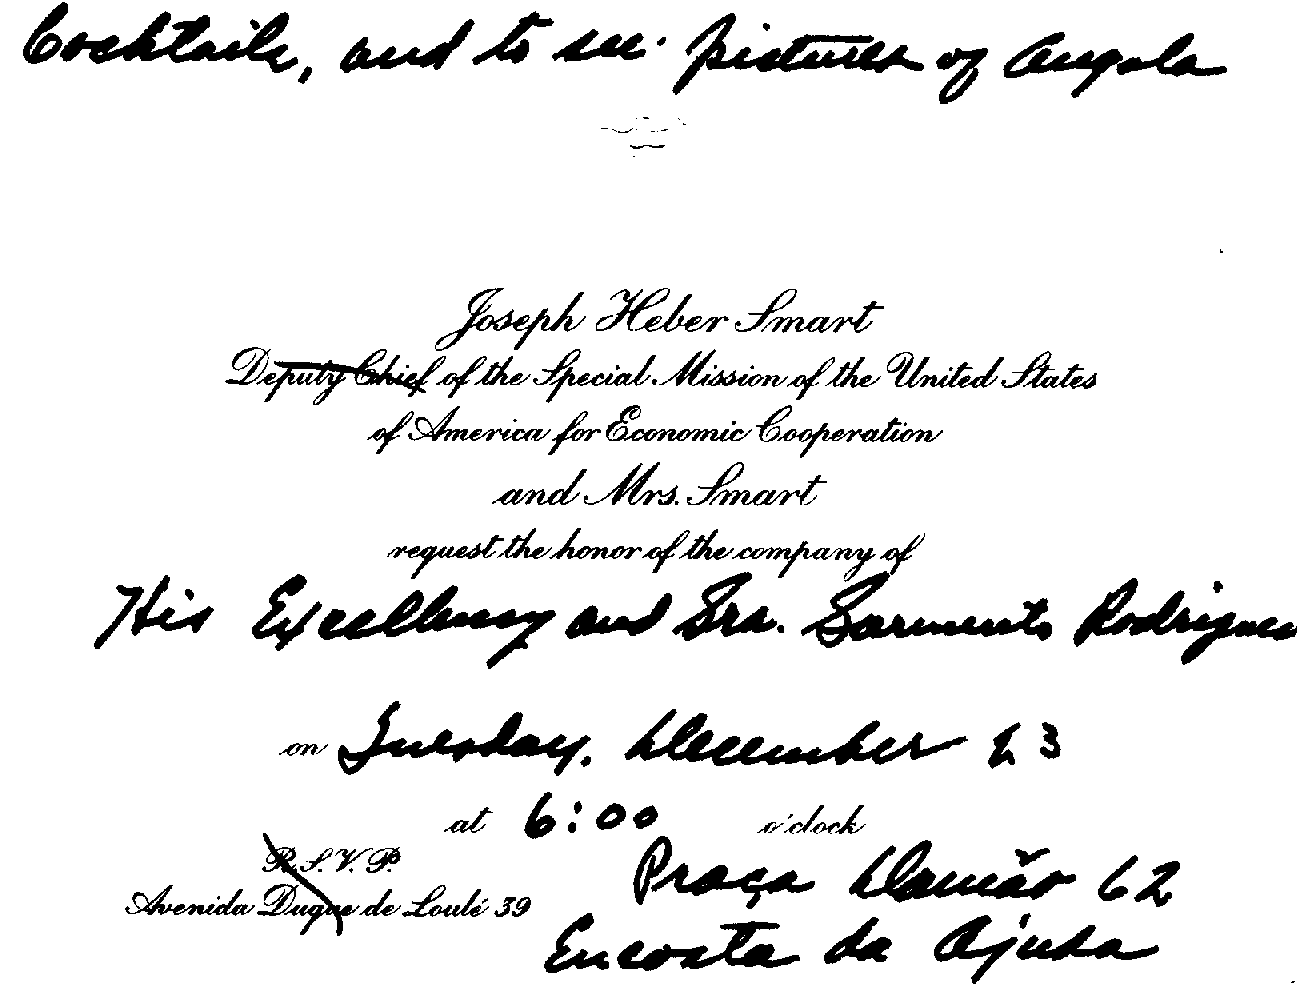 Cocktails, and to see pictures of Angola
Joseph Heber Smart
Deputy Chief of the Special Mission of the United States
of America for Economic Cooperation
and Mrs. Smart
request the honor of the company of
His Excellency and Sra. Sarmento Rodrigues
on Tuesday, December 23
at 6:00 o'clock
R.S.V.P.
Avenida Duque de Loulé 39
Praça Damião 62
Encosta da Ajuda